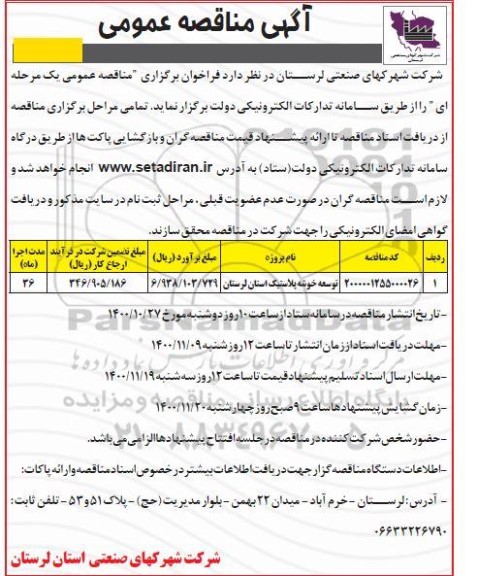 آگهی مناقصه عمومی
شرکت شهرکهای صنعتی
لرستان
شرکت شهرکهای صنعتی لرستان در نظر دارد فراخوان برگزاری "مناقصه عمومی یک مرحله
ای" را از طریق سامانه تدارکات الکترونیکی دولت برگزار نماید. تمامی مراحل برگزاری مناقصه
از دریافت اسناد مناقصه تا ارائه پیشنهاد قیمت مناقصه گران و بازگشایی پاکت ها از طریق درگاه
سامانه تدارکات الکترونیکی دولت(ستاد) به آدرس www.setadiran.ir انجام خواهد شد و
لازم است مناقصه گران در صورت عدم عضویت قبلی، مراحل ثبت نام در سایت مذکور و دریافت
گواهی امضای الکترونیکی را جهت شرکت در مناقصه محقق سازند.
ردیف کدمناقصه نام پروژه مبلغ برآورد (ریال) مبلغ تضمین شرکت در فرآیند ارجاع کار (ریال) مدت اجرا (ماه)
۱ ۲۰۰۰۰۰۱۲۵۵۰۰۰۰۲۶ توسعه خوشه پلاستیک استان لرستان ۶/۹۳۸/۱۰۳/۷۲۹ ۳۴۶/۹۰۵/۱۸۶ ۳۶
-تاریخ انتشار مناقصه در سامانه ستاد از ساعت ۱۰ روز دوشنبه مورخ ۱۴۰۰/۱۰/۲۷
-مهلت دریافت اسناد از زمان انتشار تا ساعت ۱۲ روز شنبه ۱۴۰۰/۱۱/۰۹
-مهلت ارسال اسناد تسلیم پیشنهاد قیمت تا ساعت ۱۲ روز سه شنبه ۱۴۰۰/۱۱/۱۹
-زمان گشایش پیشنهادها ساعت ۹ صبح روز چهارشنبه ۱۴۰۰/۱۱/۲۰
-حضور شخص شرکت کننده در مناقصه در جلسه افتتاح پیشنهادها الزامی می باشد.
-اطلاعات دستگاه مناقصه گزار جهت دریافت اطلاعات بیشتر در خصوص اسناد مناقصه و ارائه پاکات:
- آدرس: لرستان - خرم آباد - میدان ۲۲ بهمن - بلوار مدیریت (حج) - پلاک ۵۱ و ۵۳ - تلفن ثابت:
۰۶۶۳۳۲۲۶۷۹۰
شرکت شهرکهای صنعتی استان لرستان